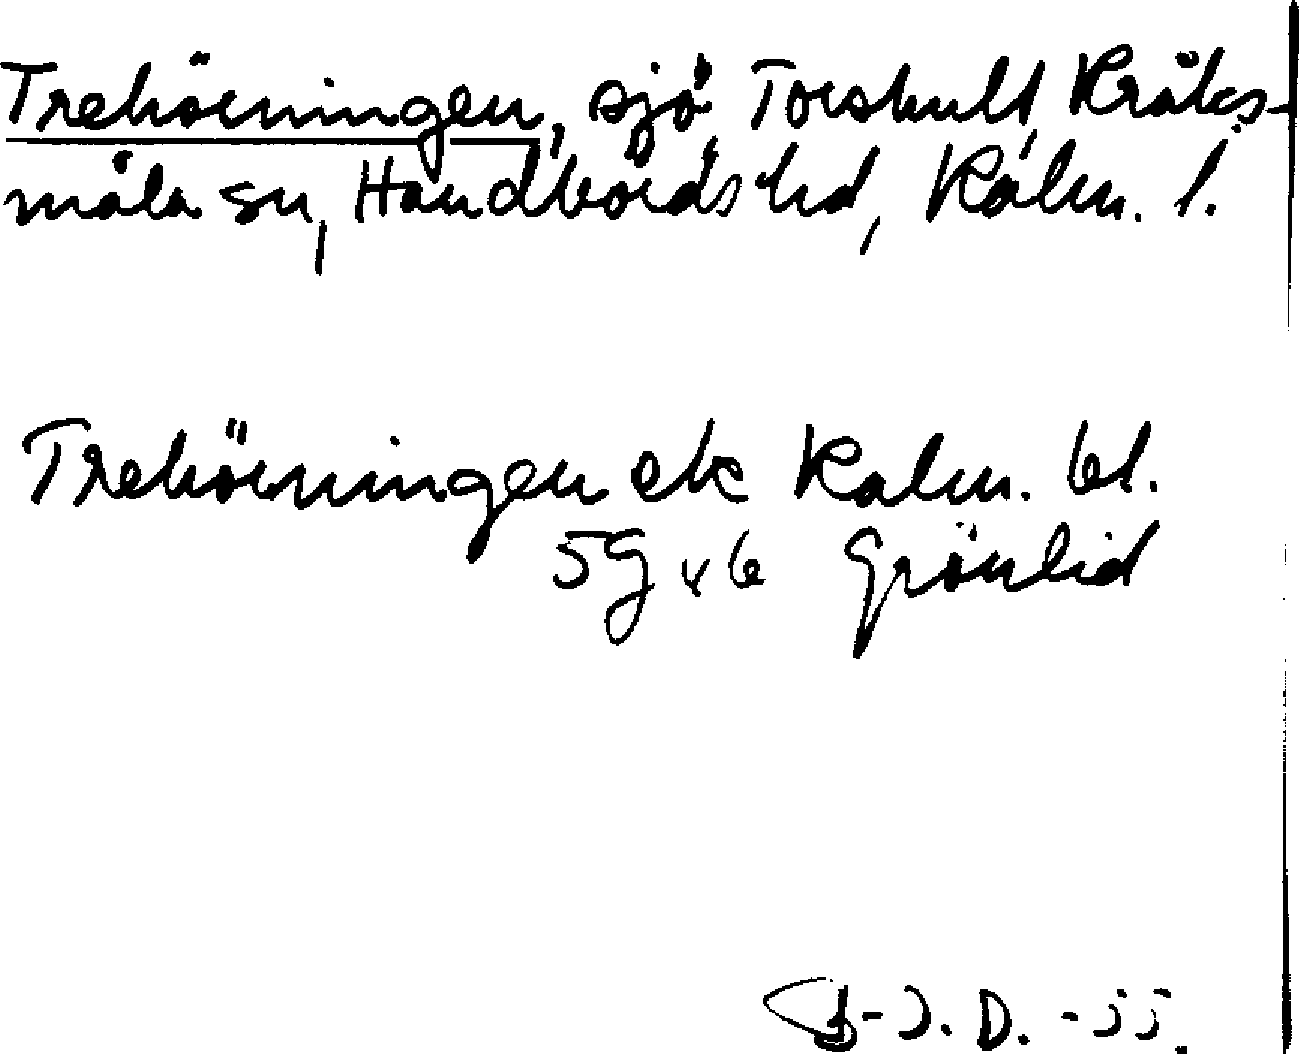 Trehörningen, sjö, Torskult, Kråks-
måla sn, Handbörds hd, Kalm. l.
Trehörningen ek Kalm. bl.
5g x6 Grönlid
-J. D. -55.